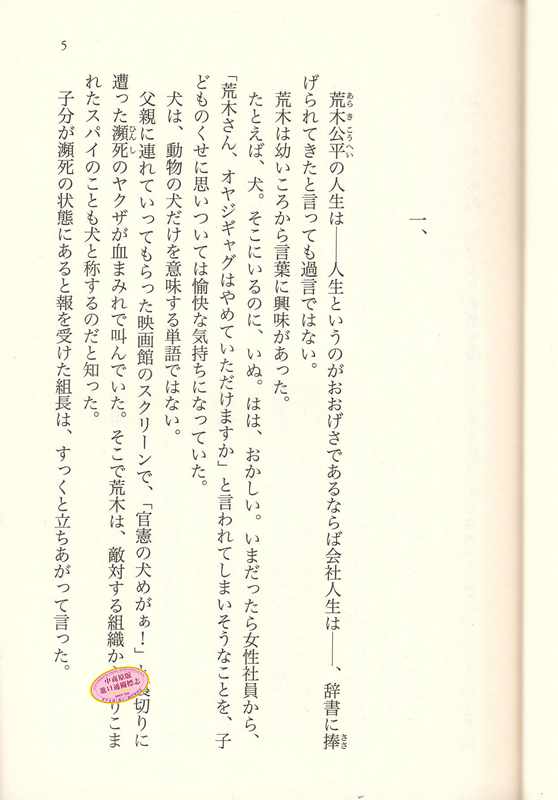 5
一、
荒木公平の人生は――人生というのがおおげさであるならば会社人生は――、辞書に捧
げられてきたと言っても過言ではない。
荒木は幼いころから言葉に興味があった。
たとえば、犬。そこにいるのに、いぬ。はは、おかしい。いまだったら女性社員から、
「荒木さん、オヤジギャグはやめていただけますか」と言われてしまいそうなことを、子
どものくせに思いついては愉快な気持ちになっていた。
犬は、動物の犬だけを意味する単語ではない。
父親に連れていってもらった映画館のスクリーンで、「官憲の犬めがぁ！」 切りに
遭った瀕死のヤクザが血まみれで叫んでいた。そこで荒木は、敵対する組織か りこま
れたスパイのことも犬と称するのだと知った。
子分が瀕死の状態にあると報を受けた組長は、すっくと立ちあがって言った。
あらき こうへい
ささ
ひんし
中商原版
進口通關標志